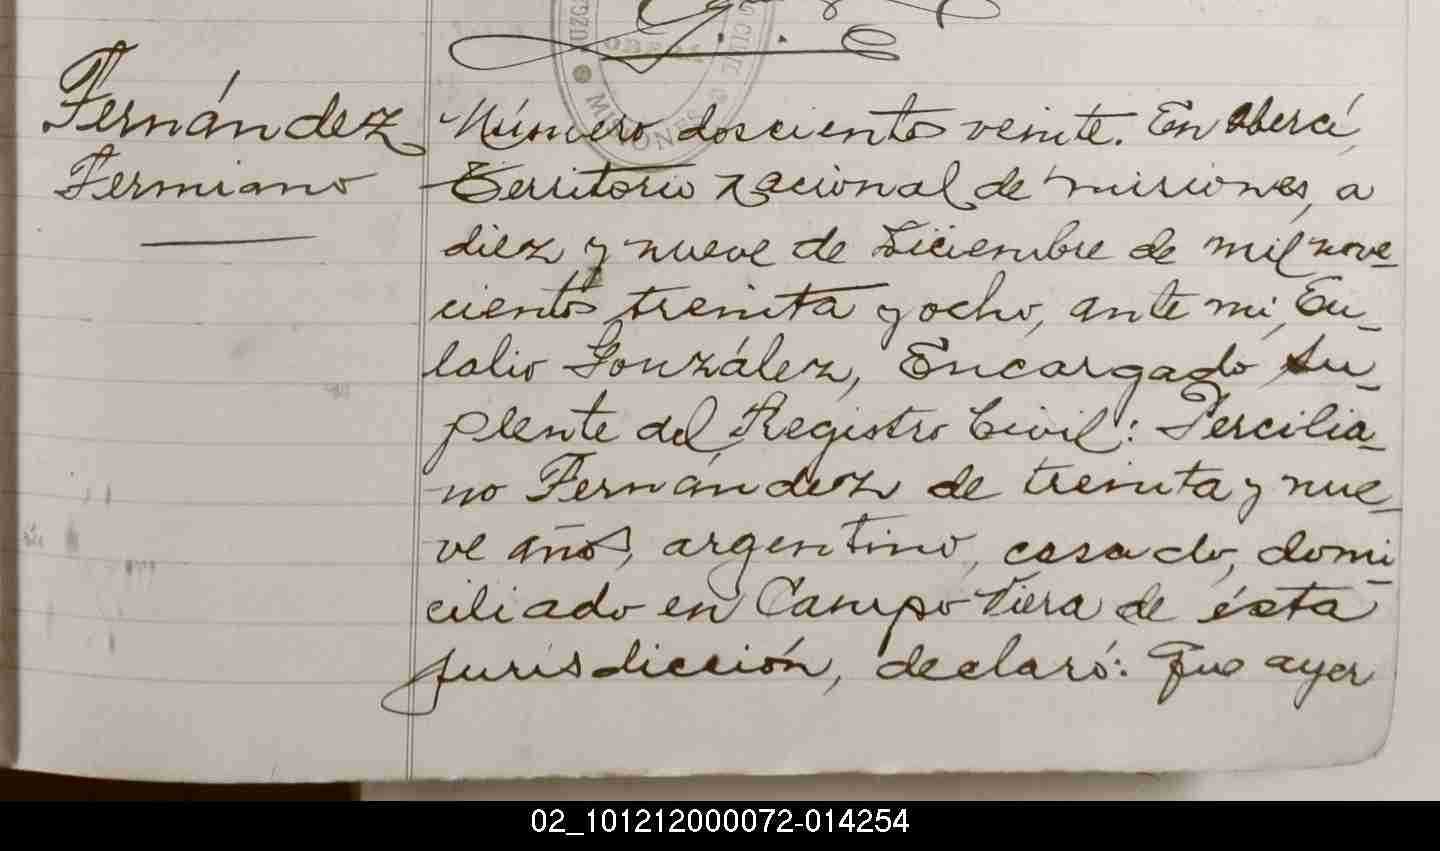 MISIONES
Fernández
Fermiano
Número doscientos veinte. En Oberá,
Territorio nacional de misiones, a
diez y nueve de Diciembre de mil nove-
cientos treinta y ocho, ante mi, Eu-
lalio González, Encargado Su-
plente del Registro Civil: Tercilia-
no Fernández de treinta y nue-
ve años, argentino, casado, domi-
ciliado en Campo Viera de ésta
jurisdicción, declaró: Que ayer
02_101212000072-014254